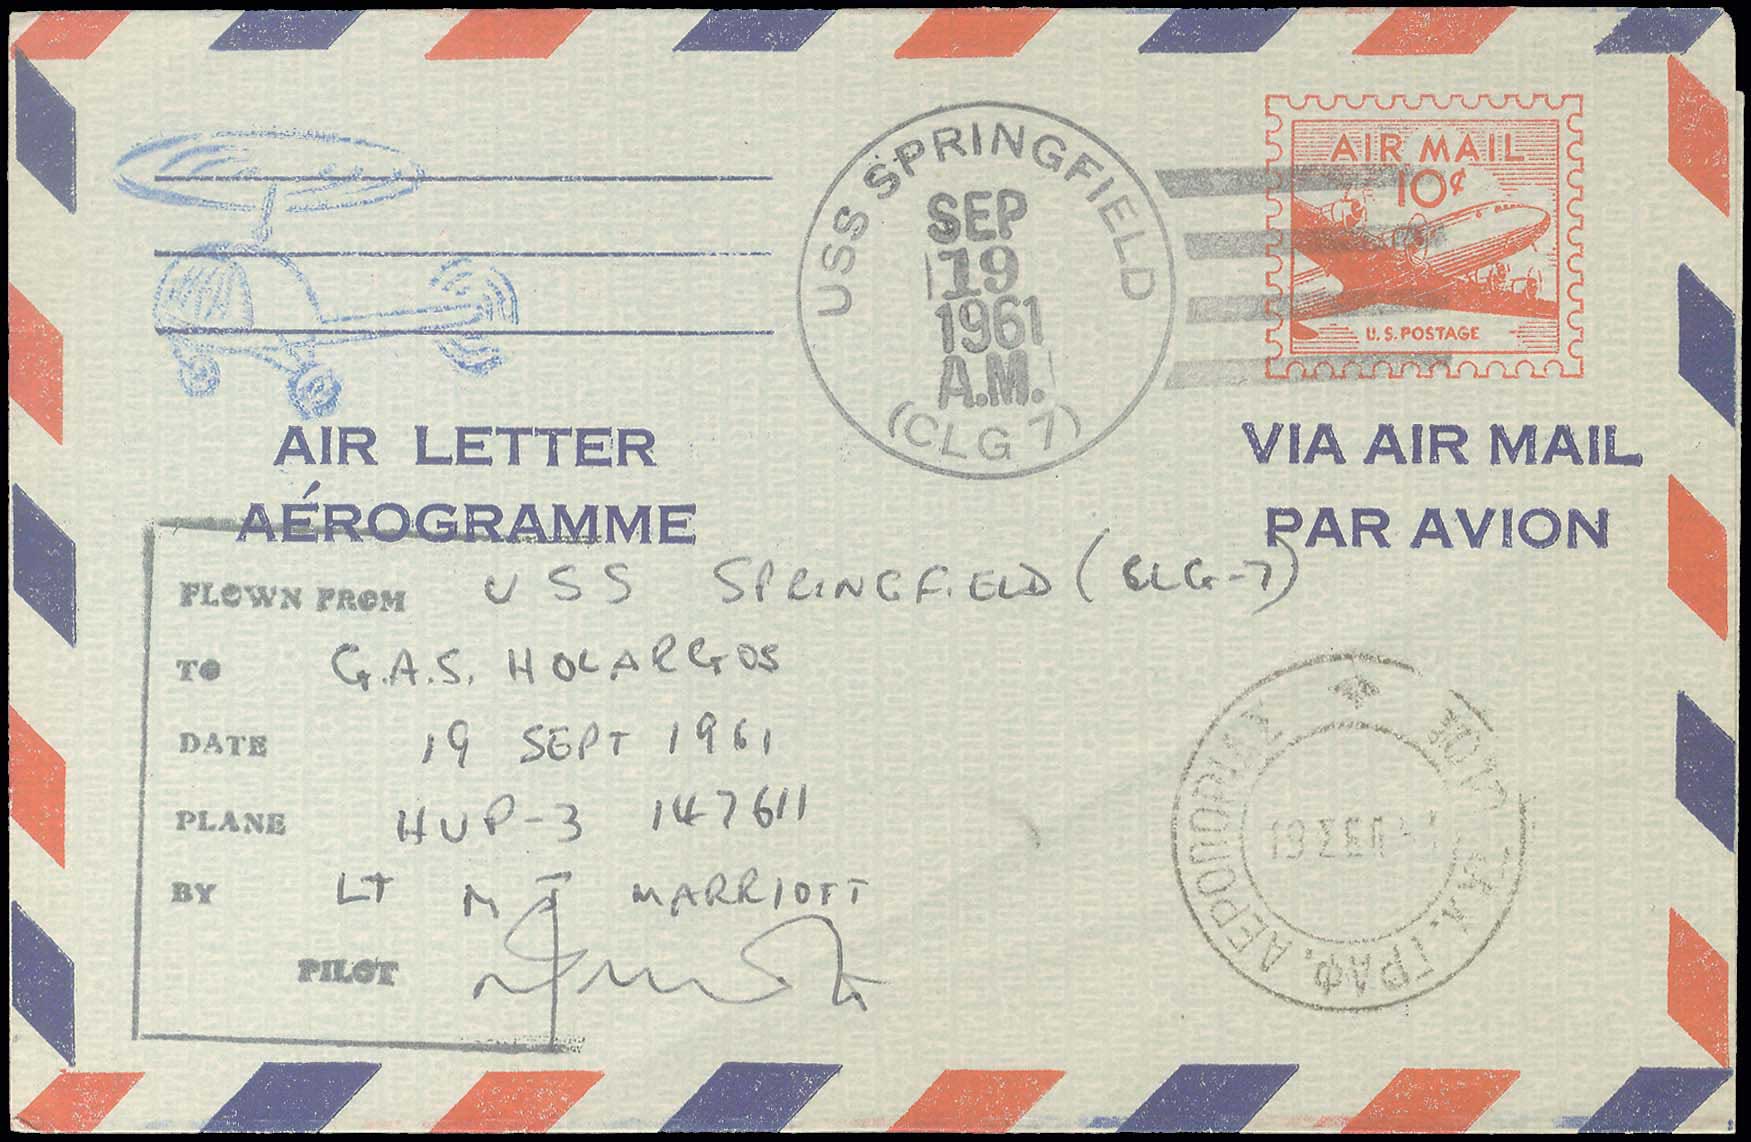 USS SPRINGFIELD
SEP
19
1961
A.M.
(CLG 7)
AIR MAIL
10¢
U.S. POSTAGE
AIR LETTER
AÉROGRAMME
VIA AIR MAIL
PAR AVION
FLOWN FROM USS SPRINGFIELD (CLG-7)
TO G.A.S. HOLARGOS
DATE 19 SEPT 1961
PLANE HUP-3 147611
BY LT M J MARRIOTT
PILOT
ΓΡΑΦ. ΑΕΡΟΠΟΡΙΚΩΣ
19 ΣΕΠ